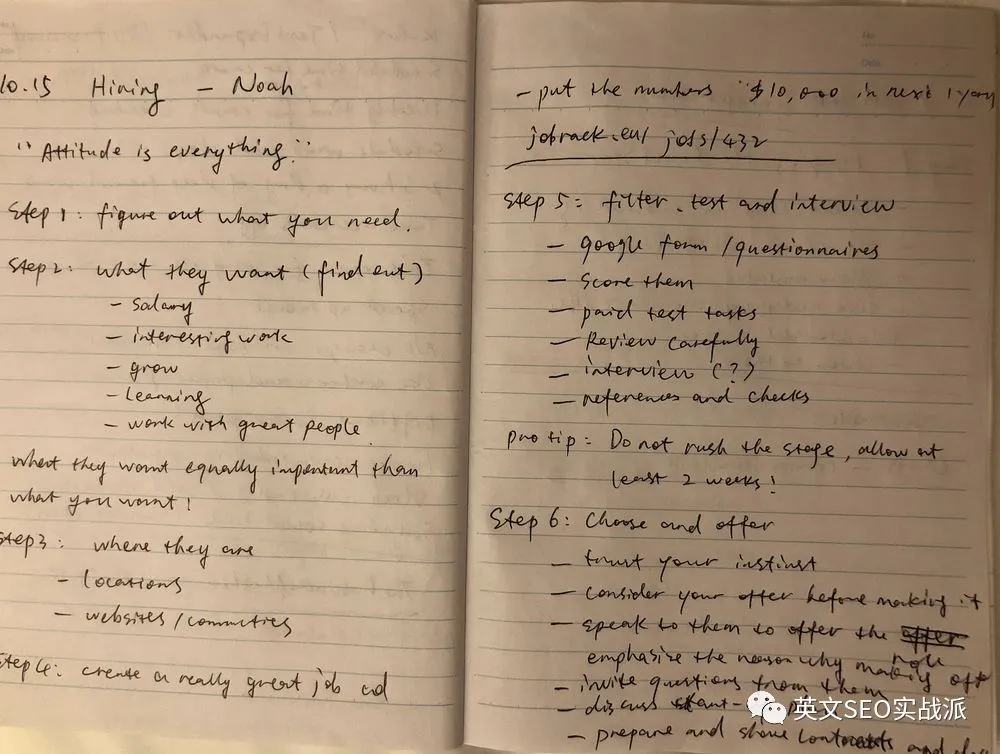 10.15 Hiring - Noah
"Attitude is everything."
Step 1: figure out what you need.
Step 2: what they want (find out)
- salary
- interesting work
- grow
- learning
- work with great people.
what they want equally important than
what you want!
Step 3: where they are
- locations
- websites/commuties
Step 4: create a really great job ad
- put the numbers "$10,000 in next 1 year
jobrack.eu/jobs/432
Step 5: filter. test and interview
- google form/questionnaires
- score them
- paid test tasks
- Review carefully
- interview (?)
- references and checks
pro tip: Do not rush the stage, allow at
least 2 weeks!
Step 6: Choose and offer
- trust your instinst
- consider your offer before making it
- speak to them to offer the role
emphasize the reason why making off
- invite questions from them
- discuss start-
- prepare and share contracts and
英文SEO实战派